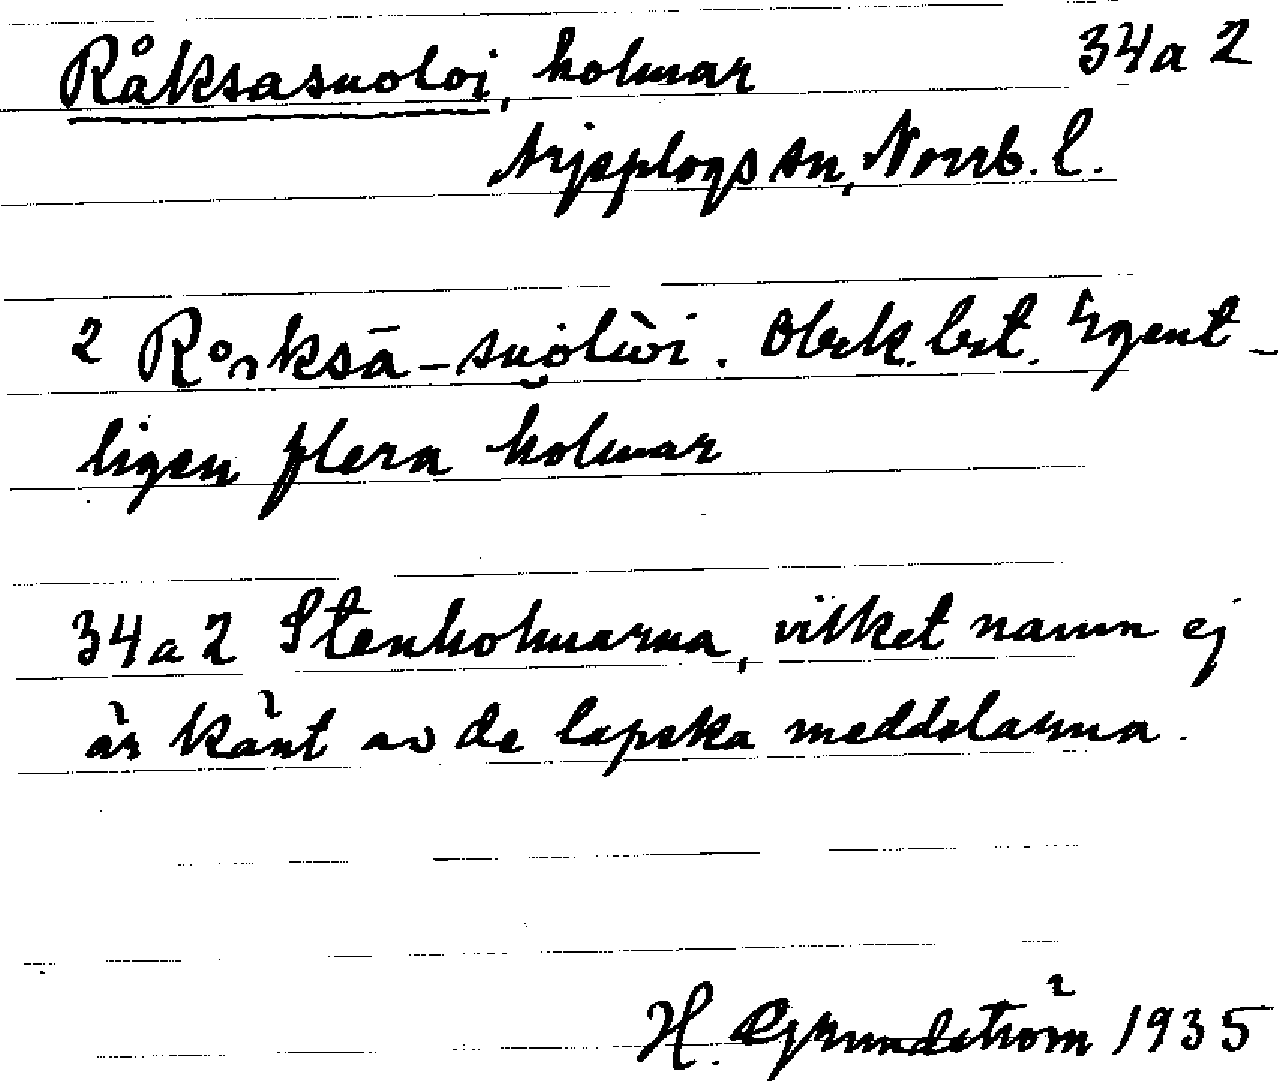 Råksasuoloi, holmar 34a2
Arjeplogs sn, Norrb. l.
2 Råksā-suoloi. Obek. best. Egent-
ligen flera holmar
34a2 Stenholmarna, vilket namn ej
är känt av de lapska meddelarna.
H. Grundström 1935